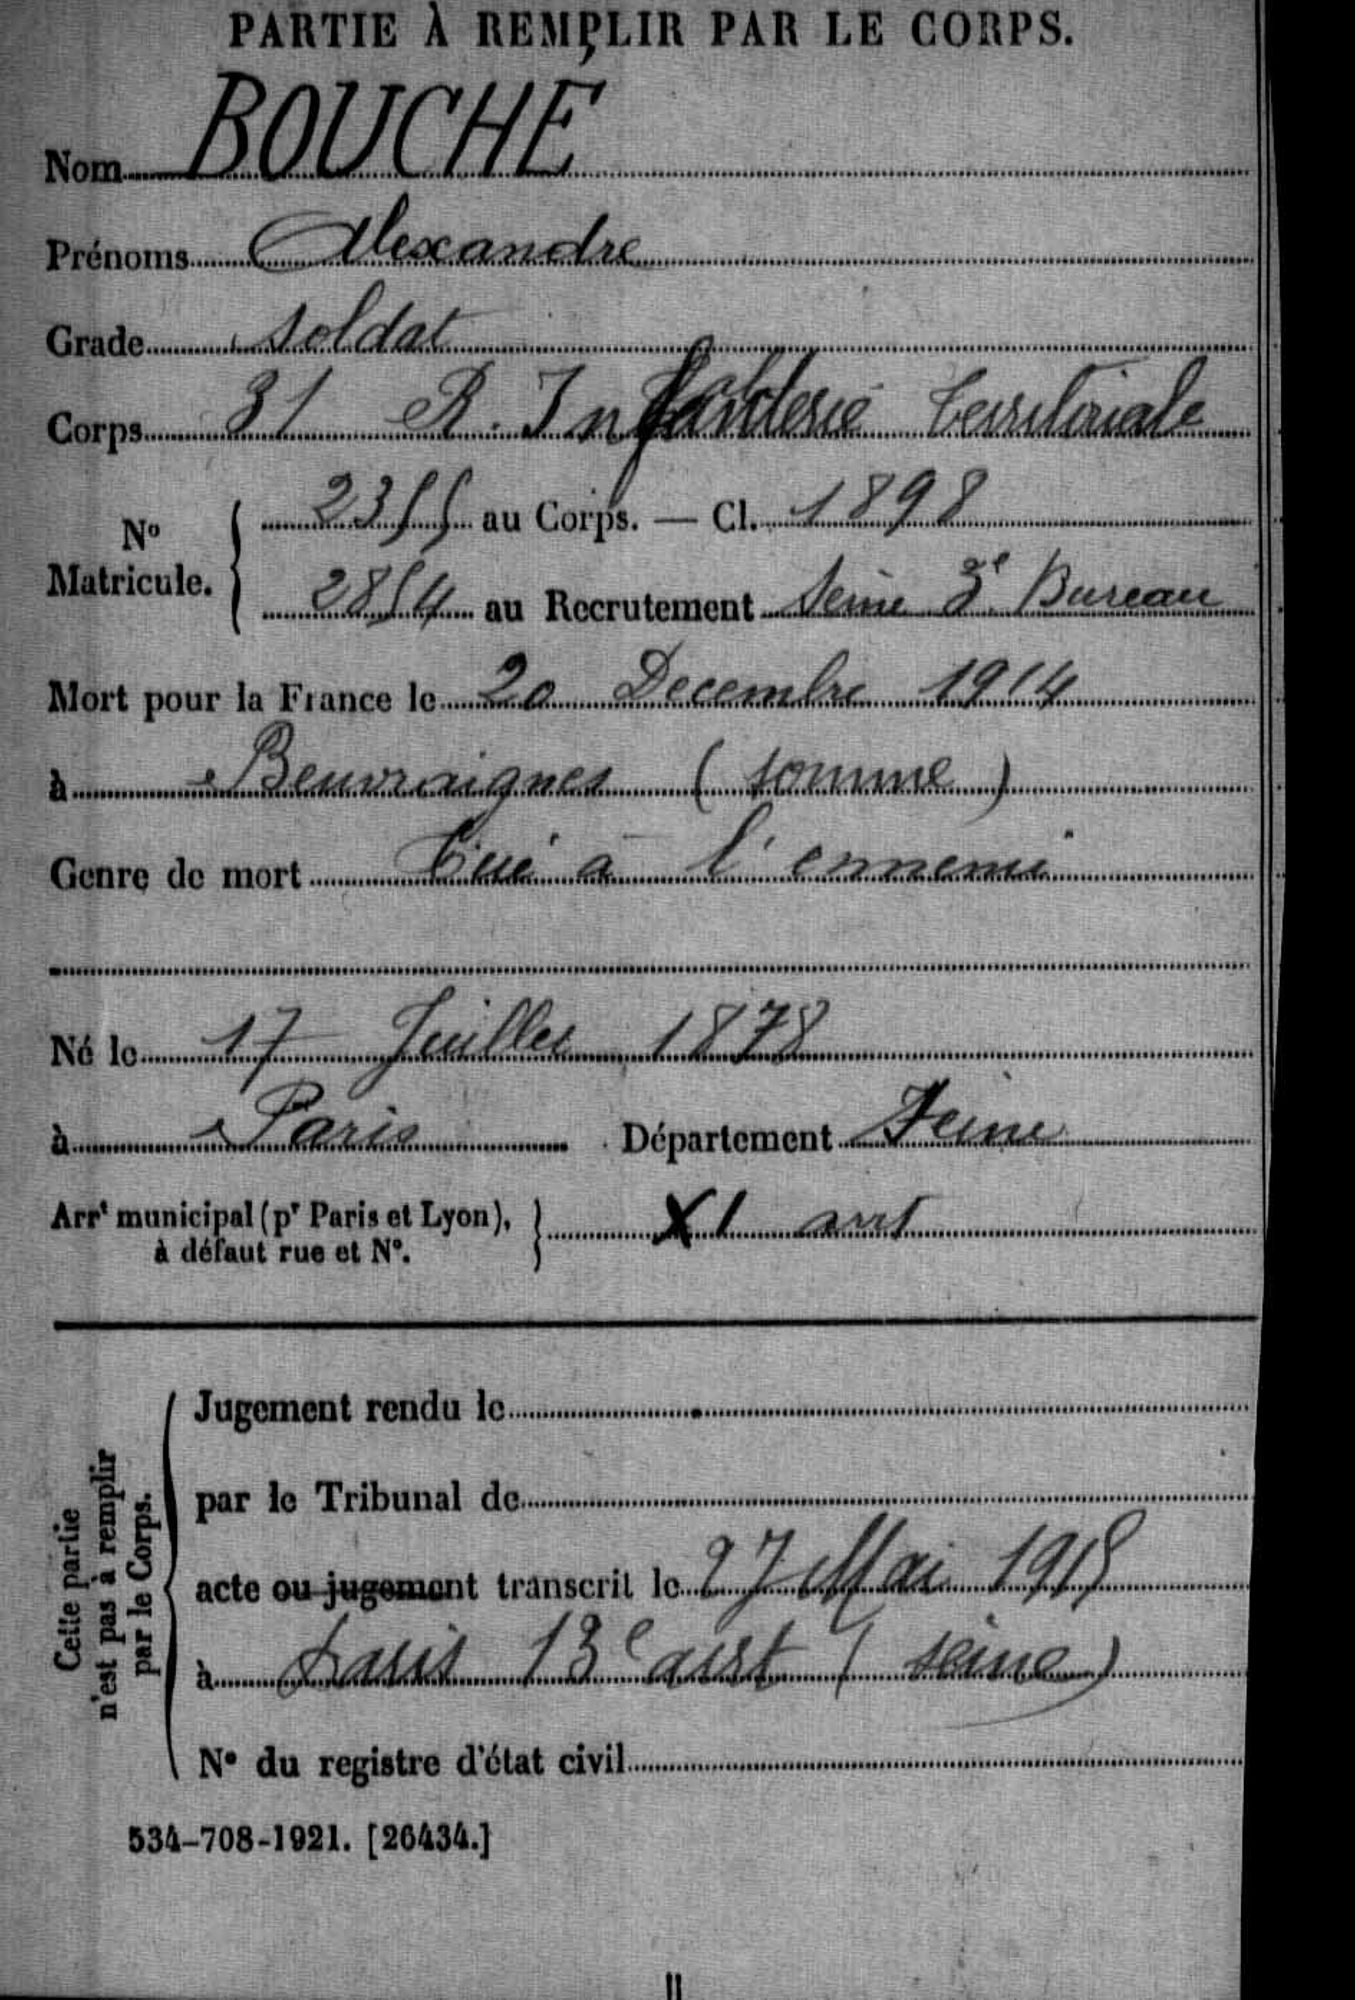 PARTIE À REMPLIR PAR LE CORPS.
Nom BOUCHÉ
Prénoms Alexandre
Grade Soldat
Corps 31 R. Infanterie territoriale
N° Matricule. 2355 au Corps. — Cl. 1898
2854 au Recrutement Seine 3e Bureau
Mort pour la France le 20 Decembre 1914
à Beuvraignes (somme)
Genre de mort Tué à l'ennemi
Né le 17 Juillet 1878
à Paris Département Seine
Arrt municipal (pr Paris et Lyon), à défaut rue et N°. XI arrt
Cette partie n'est pas à remplir par le Corps.
Jugement rendu le
par le Tribunal de
acte ou jugement transcrit le 27 Mai 1915
à Paris 13e arrt (seine)
N° du registre d'état civil
534-708-1921. [26434.]